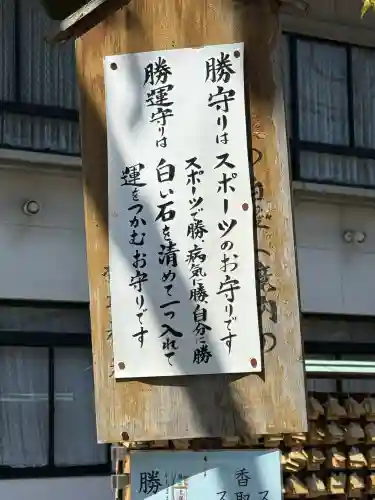 勝守りはスポーツのお守りです
スポーツで勝、病気に勝、自分に勝
勝運守りは
白い石を清めて一つ入れて
運をつかむお守りです
勝
香取